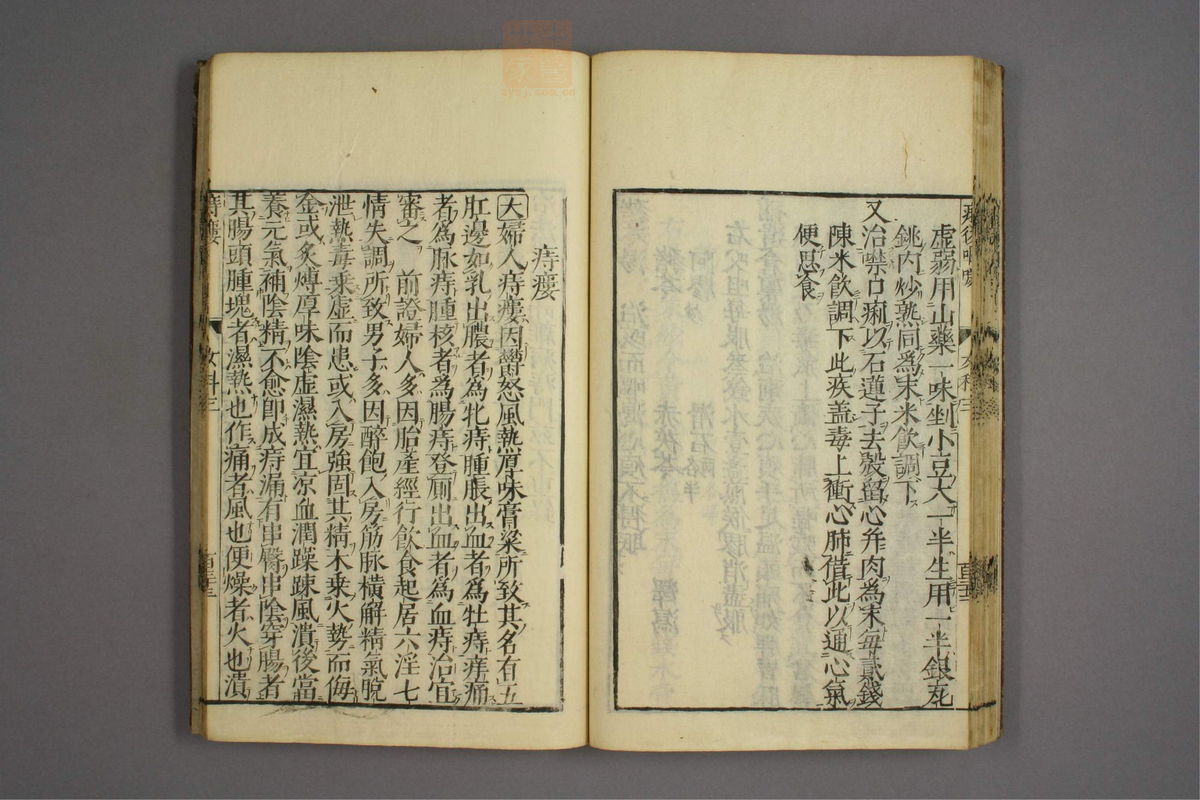 虛弱用山藥一味剉小豆大一半生用一半銀瓦
銚内炒熟同爲末米飲調下
又治噤口痢以石蓮子去殻留心幷肉爲末每貳錢
陳米飲調下此疾盖毒上衝心肺借此以通心氣
便思食
女科三
痔瘻
大婦人痔瘻因欝怒風熱厚味膏粱所致其名有五
肛邊如乳出膿者爲牝痔腫脹出血者爲牡痔痒痛
者爲脉痔腫核者爲腸痔登厠出血者爲血痔治宜
審之 前證婦人多因胎產經行飲食起居六淫七
情失調所致男子多因醉飽入房筋脉橫解精氣脫
泄熱毒乘虛而患或入房強固其精木乘火勢而侮
金或炙煿厚味陰虛濕熱宜凉血潤躁踈風潰後當
養元氣補陰精不愈即成痔漏有串臀串陰穿腸者
其腸頭腫塊者濕熱也作痛者風也便燥者火也潰
痔瘻
女科三
zyyj.com.cn